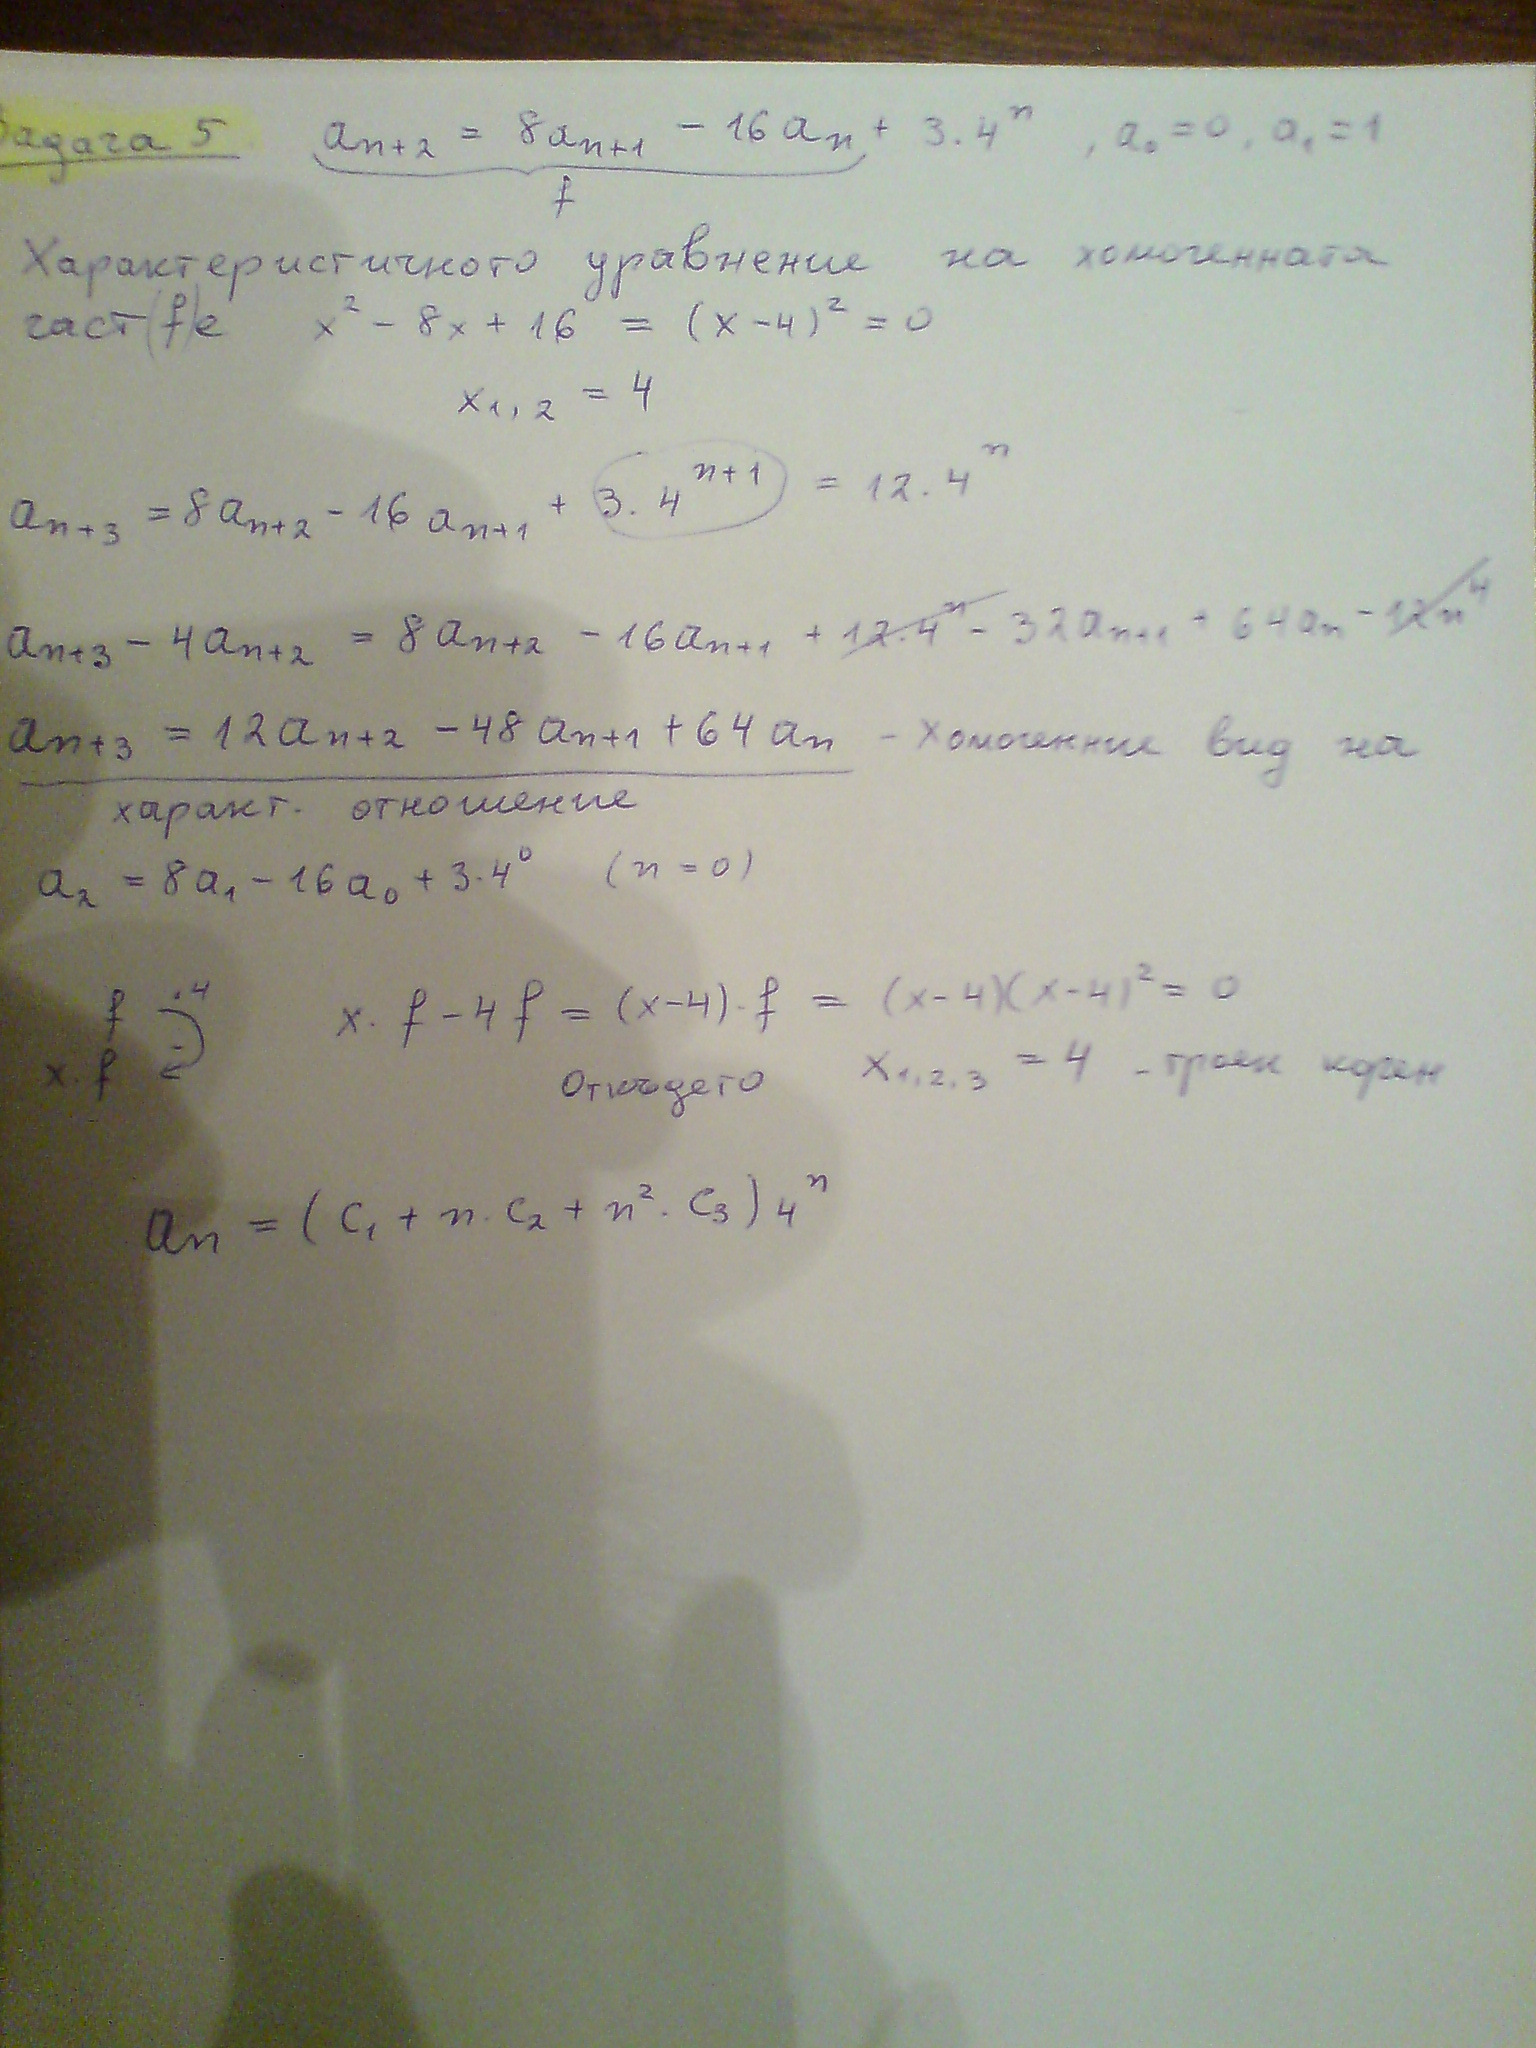 Задача 5 aₙ₊₂ = 8aₙ₊₁ - 16aₙ + 3.4ⁿ , a₀ = 0, a₁ = 1
f
Характеристичното уравнение на хомогенната
част (f) е x² - 8x + 16 = (x-4)² = 0
x₁,₂ = 4
aₙ₊₃ = 8aₙ₊₂ - 16aₙ₊₁ + 3.4ⁿ⁺¹ = 12.4ⁿ
aₙ₊₃ - 4aₙ₊₂ = 8aₙ₊₂ - 16aₙ₊₁ + 12.4ⁿ - 32aₙ₊₁ + 64aₙ - 12n⁴
aₙ₊₃ = 12aₙ₊₂ - 48aₙ₊₁ + 64aₙ - Хомогенние вид на
характ. отношение
a₂ = 8a₁ - 16a₀ + 3.4⁰ (n = 0)
f .4 x. f - 4f = (x-4).f = (x-4)(x-4)² = 0
x.f - Откъдето x₁,₂,₃ = 4 - троен корен
aₙ = (c₁ + n.c₂ + n².c₃)4ⁿ